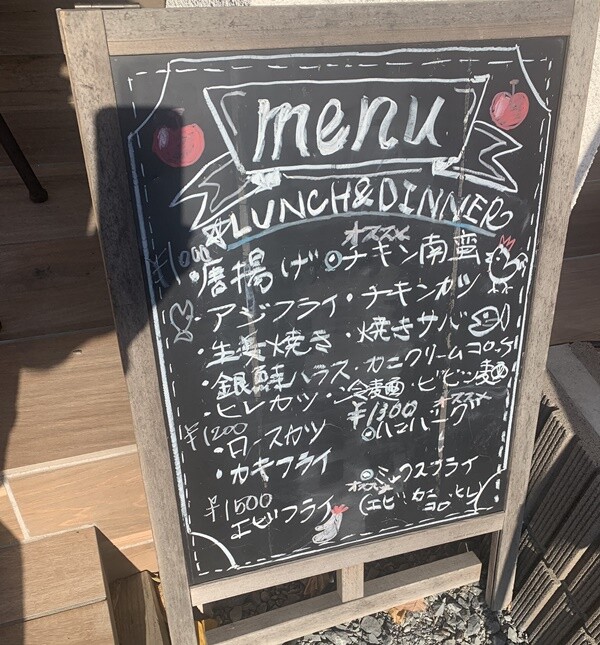 menu
LUNCH&DINNER
オススメ
¥1000
・唐揚げ ◎チキン南蛮
・アジフライ・チキンカツ
・生姜焼き・焼きサバ
・銀鮭ハラス・カニクリームコロッケ
・ヒレカツ・冷麺・ビビン麺
¥1200 ¥1300 オススメ
・ロースカツ
・カキフライ
◎ミックスフライ
オススメ
(エビ・カニコロ・ヒレ)
¥1500
エビフライ